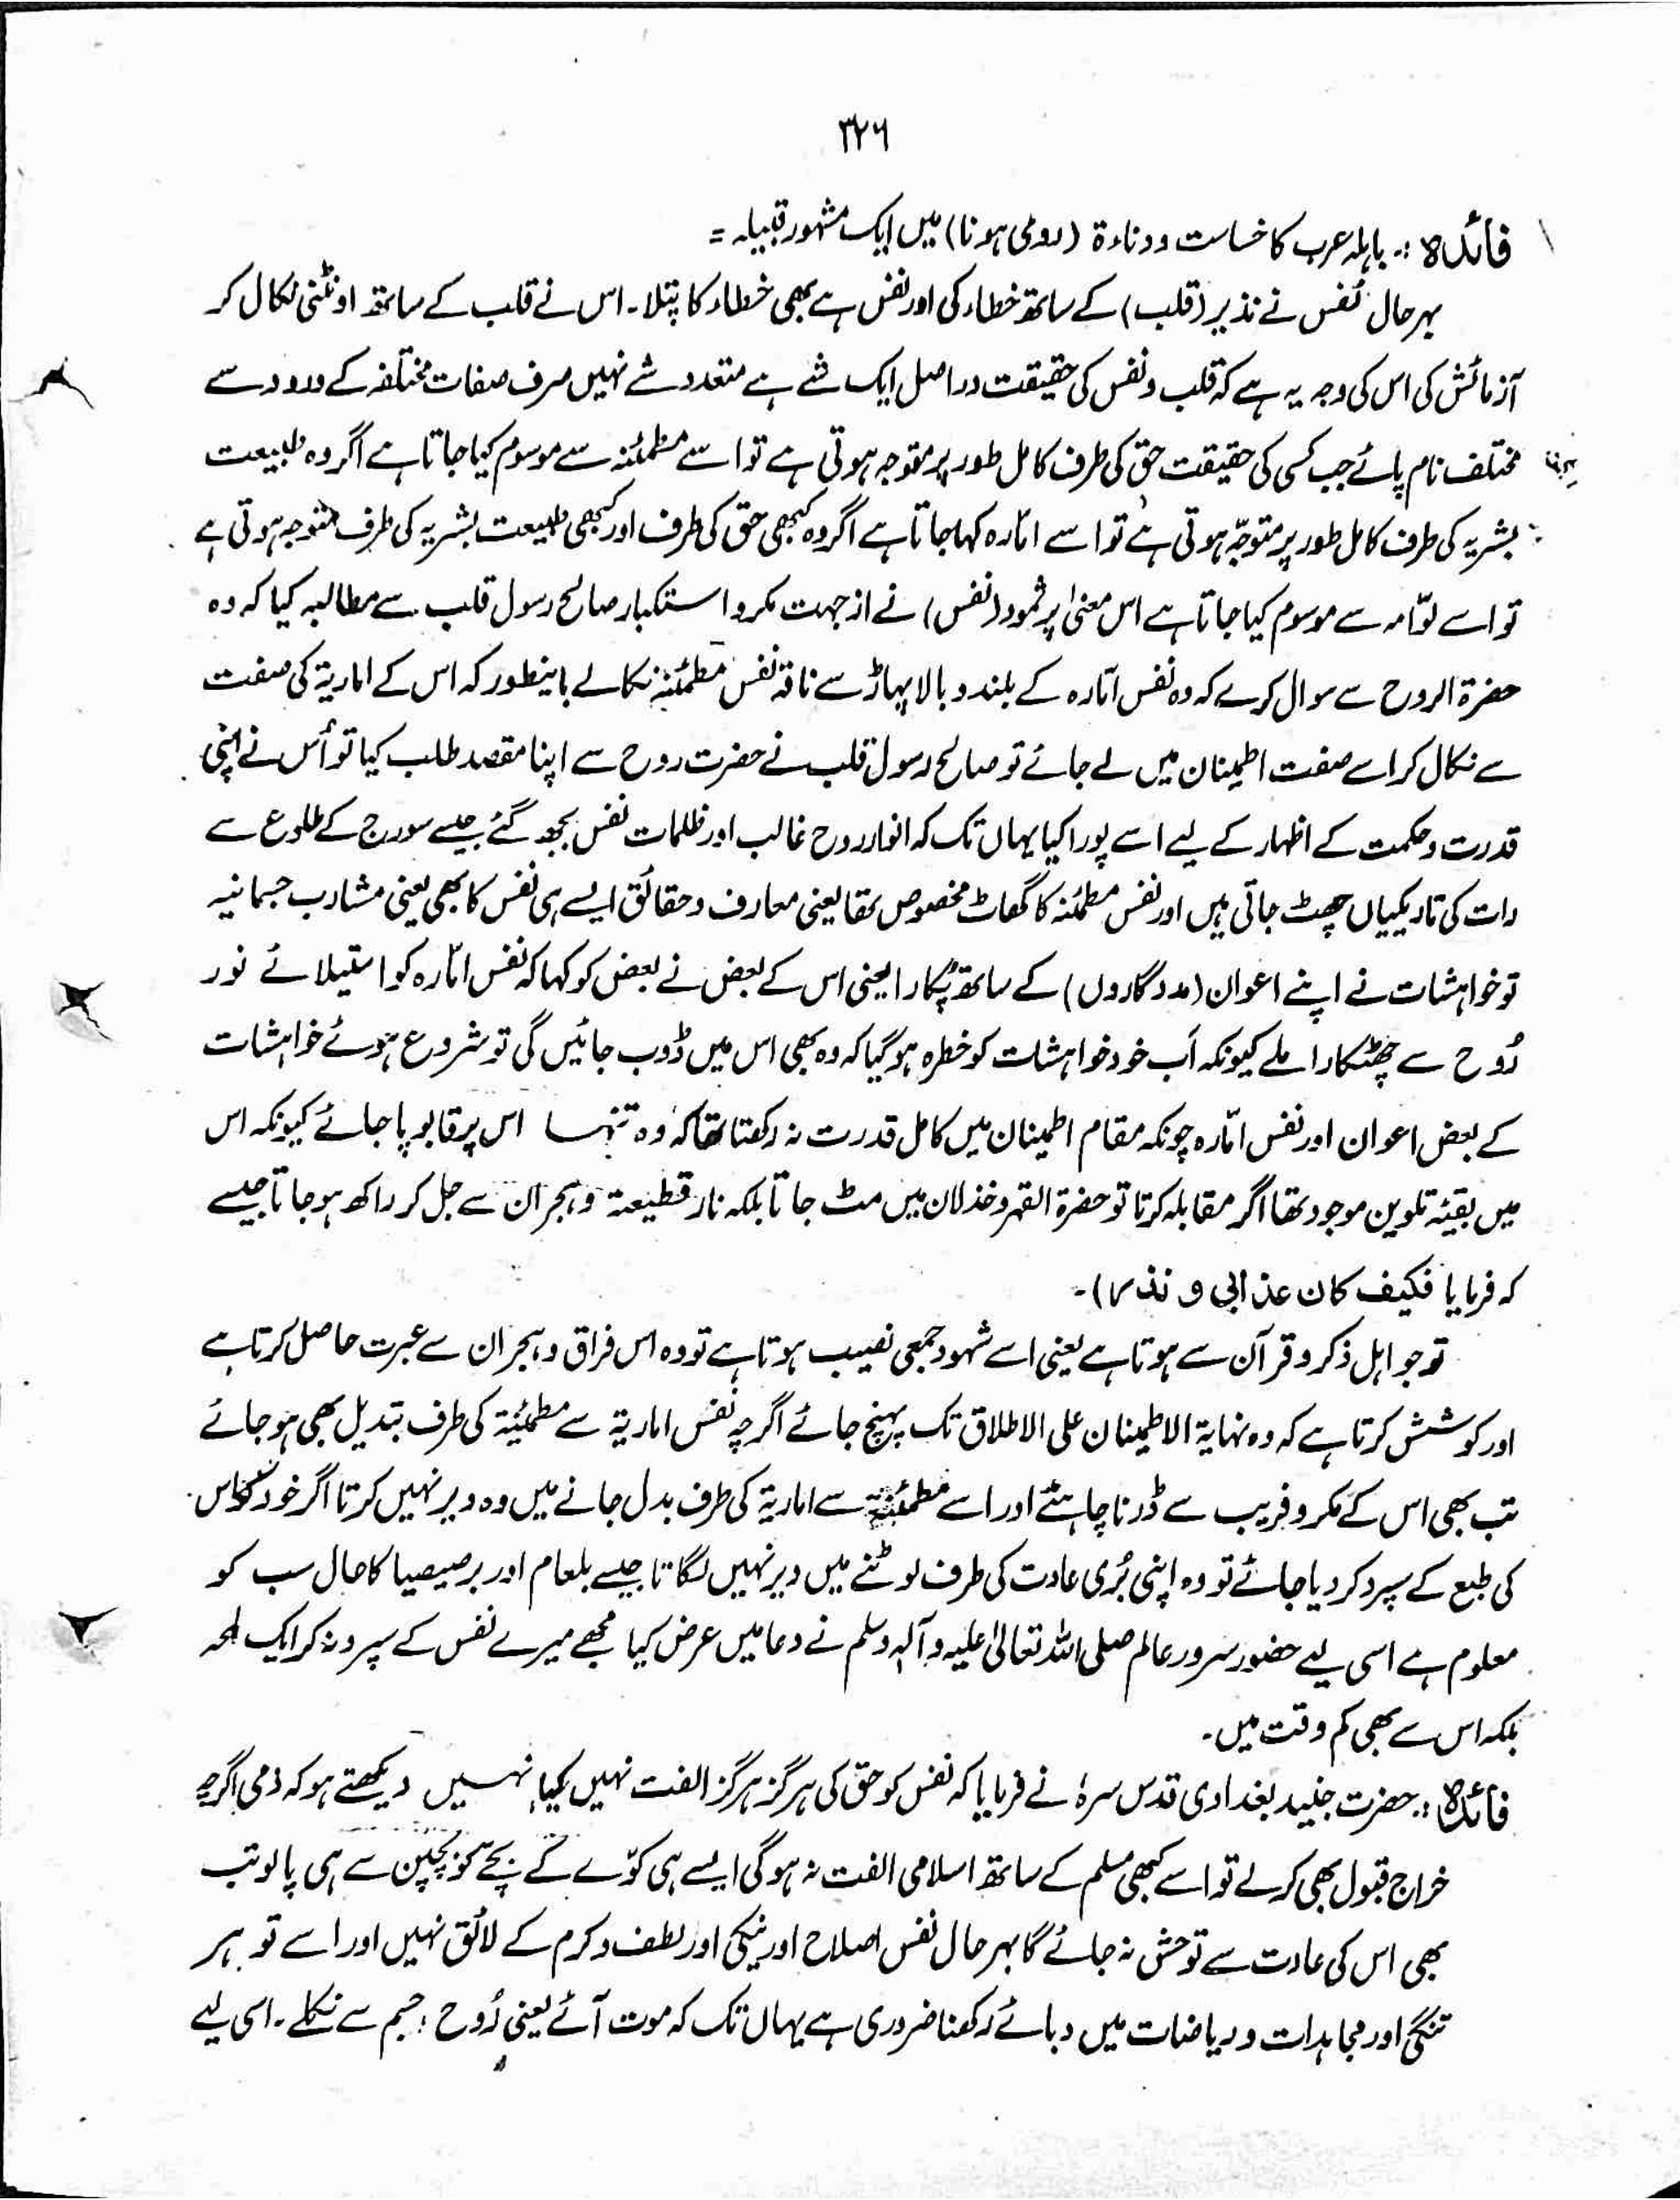 ۳۲۶
فائدہ :۔ باہلہ عرب کا خساست و دناءۃ (روی ہونا) میں ایک مشہور قبیلہ =
بہرحال نفس نے نذیر (قلب) کے ساتھ خطاء کی اور نفس ہے بھی خطاء کا پتلا۔ اس نے قلب کے ساتھ اونٹنی نکال کر
آزمائش کی اس کی وجہ یہ ہے کہ قلب و نفس کی حقیقت دراصل ایک شے ہے متعدد شے نہیں صرف صفات مختلفہ کے ورود سے
مختلف نام پائے جب کسی کی حقیقت حق کی طرف کامل طور پر متوجہ ہوتی ہے تو اسے مطمئنہ سے موسوم کیا جاتا ہے اگر وہ طبیعت
بشریہ کی طرف کامل طور پر متوجّہ ہوتی ہے تو اسے امّارہ کہا جاتا ہے اگر وہ کبھی حق کی طرف اور کبھی طبیعت بشریہ کی طرف متوجہ ہوتی ہے
تو اسے لوّامہ سے موسوم کیا جاتا ہے اس معنیٰ پر ثمود (نفس) نے از جہت مکر و استکبار صالح رسول قلب سے مطالبہ کیا کہ وہ
حضرۃ الروح سے سوال کرے کہ وہ نفس امّارہ کے بلند و بالا پہاڑ سے ناقہ نفس مطمئنہ نکالے بایں طور کہ اس کے اماریۃ کی صفت
سے نکال کر اسے صفت اطمینان میں لے جائے تو صالح رسول قلب نے حضرت روح سے اپنا مقصد طلب کیا تو اُس نے اپنی
قدرت و حکمت کے اظہار کے لیے اسے پورا کیا یہاں تک کہ انوار روح غالب اور ظلمات نفس بجھ گئے جیسے سورج کے طلوع سے
رات کی تاریکیاں چھٹ جاتی ہیں اور نفس مطمئنہ کا گھاٹ مخصوص تھا یعنی معارف و حقائق ایسے ہی نفس کا بھی یعنی مشارب جسمانیہ
تو خواہشات نے اپنے اعوان (مددگاروں) کے ساتھ پُکارا یعنی اس کے بعض نے بعض کو کہا کہ نفس امّارہ کو استیلائے نور
رُوح سے چھٹکارا ملے کیونکہ اَب خود خواہشات کو خطرہ ہو گیا کہ وہ بھی اس میں ڈوب جائیں گی تو شروع ہوئے خواہشات
کے بعض اعوان اور نفس امّارہ چونکہ مقام اطمینان میں کامل قدرت نہ رکھتا تھا کہ وہ تنہا اس پر قابو پا جائے کیونکہ اس
میں بقیئہ تلوین موجود تھا اگر مقابلہ کرتا تو حضرۃ القہر و خذلان میں مٹ جاتا بلکہ نار قطیعۃ و ہجران سے جل کر راکھ ہو جاتا جیسے
کہ فرمایا فکیف کان عذابی و نذر)۔
تو جو اہل ذکر و قرآن سے ہوتا ہے یعنی اسے شہود جمعی نصیب ہوتا ہے تو وہ اس فراق و ہجران سے عبرت حاصل کرتا ہے
اور کوشش کرتا ہے کہ وہ نہایۃ الاطمینان علی الاطلاق تک پہنچ جائے اگرچہ نفس اماریۃ سے مطمئنۃ کی طرف تبدیل بھی ہو جائے
تب بھی اس کے مکر و فریب سے ڈرنا چاہئے اور اسے مطمئنۃ سے اماریۃ کی طرف بدل جانے میں وہ دیر نہیں کرتا اگر خود کو اس
کی طبع کے سپرد کر دیا جائے تو وہ اپنی بُری عادت کی طرف لوٹنے میں دیر نہیں لگاتا جیسے بلعام اور برصیصیا کا حال سب کو
معلوم ہے اسی لیے حضور سرور عالم صلی اللہ تعالیٰ علیہ و آلہ وسلم نے دعا میں عرض کیا مجھے میرے نفس کے سپرد نہ کر ایک لمحہ
بلکہ اس سے بھی کم وقت میں۔
فائدہ :۔ حضرت جنید بغدادی قدس سرہٗ نے فرمایا کہ نفس کو حق کی ہرگز ہرگز الفت نہیں کیا نہیں دیکھتے ہو کہ ذمی اگرچہ
خراج قبول بھی کرلے تو اسے کبھی مسلم کے ساتھ اسلامی الفت نہ ہوگی ایسے ہی کوّے کے بچے کو بچپن سے ہی پالو تب
بھی اس کی عادت سے توحش نہ جائے گا بہرحال نفس اصلاح اور نیکی اور لطف و کرم کے لائق نہیں اور اسے تو ہر
تنگی اور مجاہدات و ریاضات میں دبائے رکھنا ضروری ہے یہاں تک کہ موت آئے یعنی رُوح جسم سے نکلے۔ اسی لیے